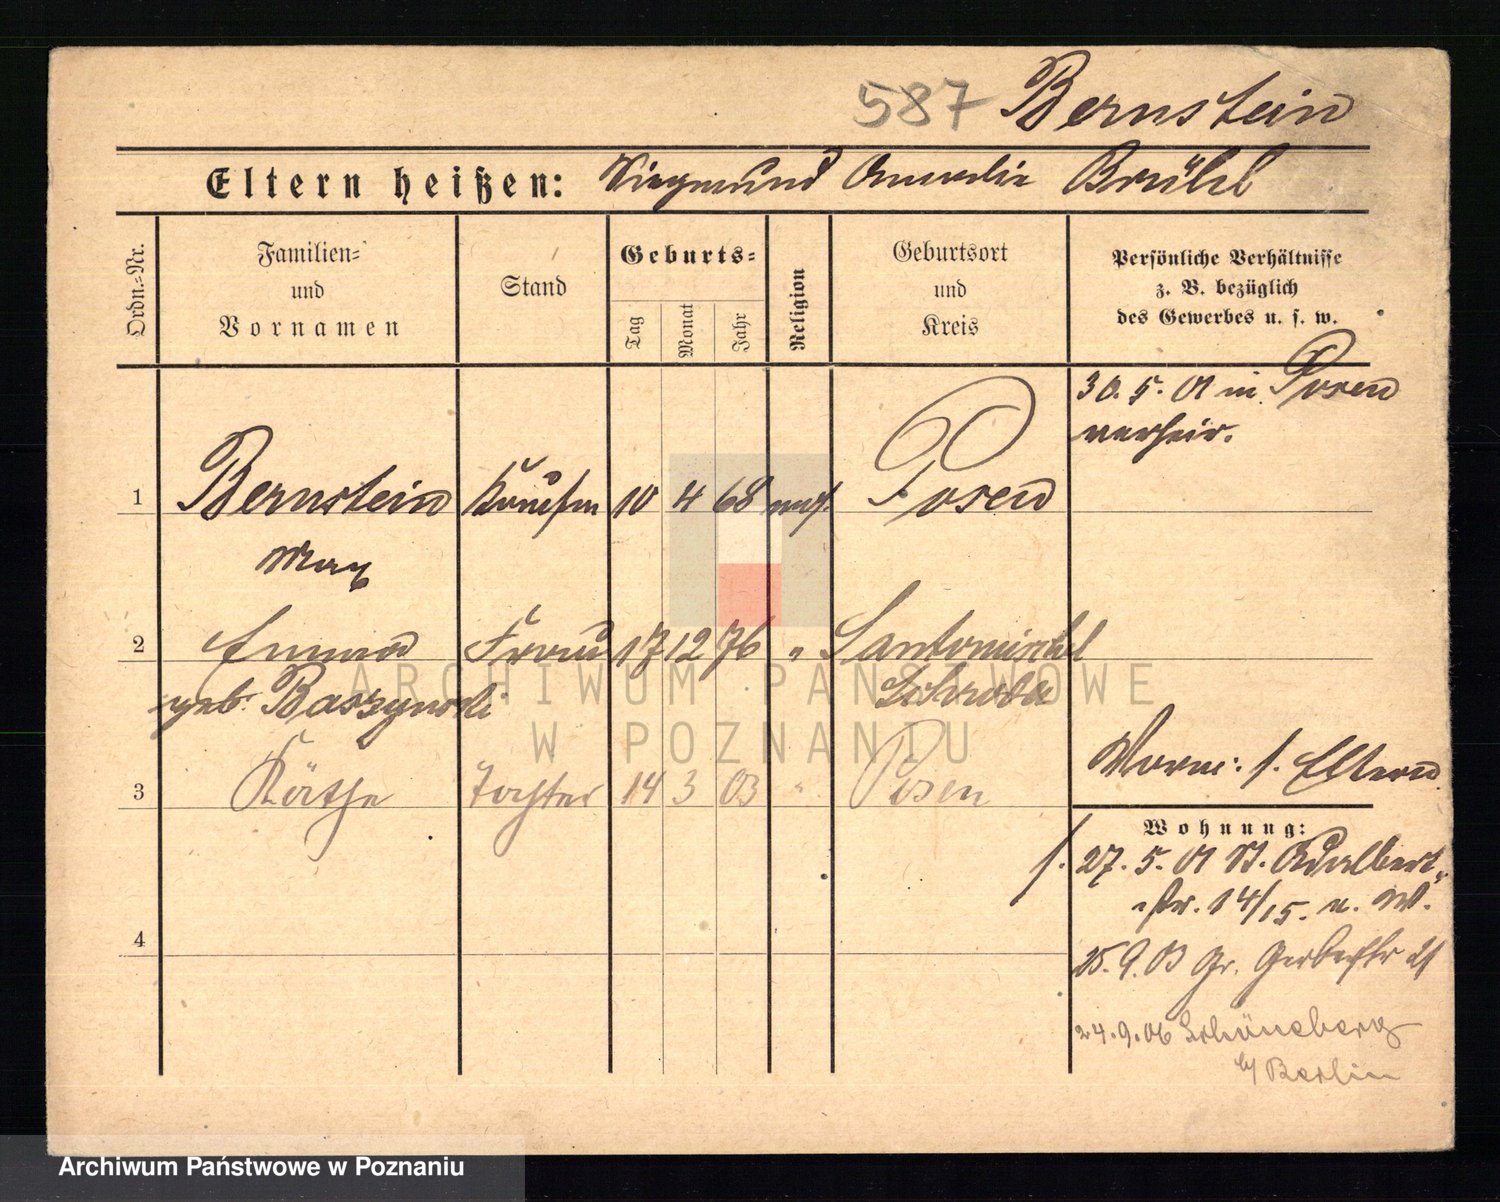 587 Bernstein
Eltern heißen: Siegmund Amalie Brühl
Ordn.-Nr.
Familien-
und
Vornamen
Stand
Geburts-
Tag
Monat
Jahr
Religion
Geburtsort
und
Kreis
Persönliche Verhältnisse
z. B. bezüglich
des Gewerbes u. s. w.
30. 5. 01 in Posen
verheir.
1 Bernstein Kaufm 10 4 68 mos. Posen
Max
2 Emma Frau 17 12 76 " Santomischel
geb. Baszynski Schroda
3 Käthe Tochter 14 3 03 " Posen
Worn: s. Eltern
Wohnung:
s. 27. 5. 01 St. Adalbert-
str. 14/15. n. W.
25. 9. 03 Gr. Gerberstr 21
4
24. 9. 06 Schöneberg
b/ Berlin
ARCHIWUM PAŃSTWOWE
W POZNANIU
Archiwum Państwowe w Poznaniu